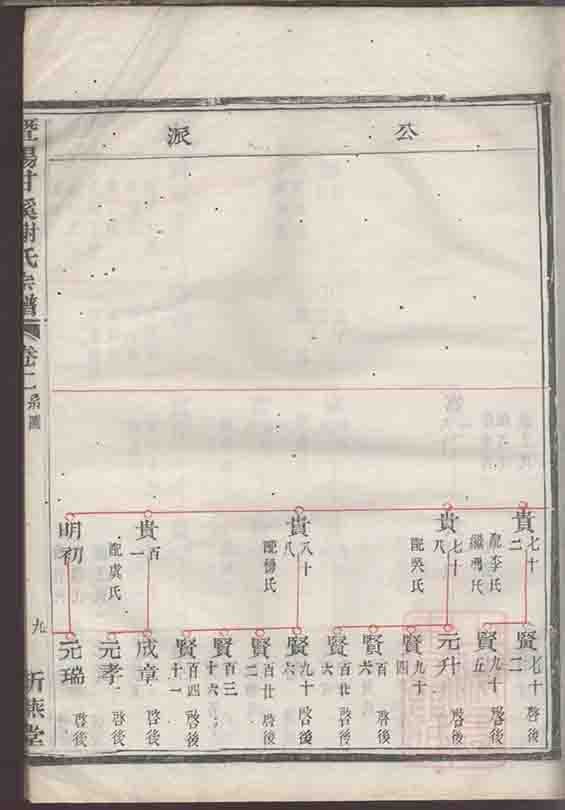 公派
貴七十二
配李氏
繼周氏
貴七十八
配吳氏
貴八十八
配傅氏
貴百一
配虞氏
明初
賢七十二
啓後
賢九十五
啓後
元升
啓後
賢九十四
賢百六
賢百廿六
啓後
賢九十六
啓後
賢百廿二
啓後
賢百三十六
賢百四十一
啓後
成章
啓後
元孝
啓後
元瑞
暨陽甘溪謝氏宗譜
卷二
系圖
九